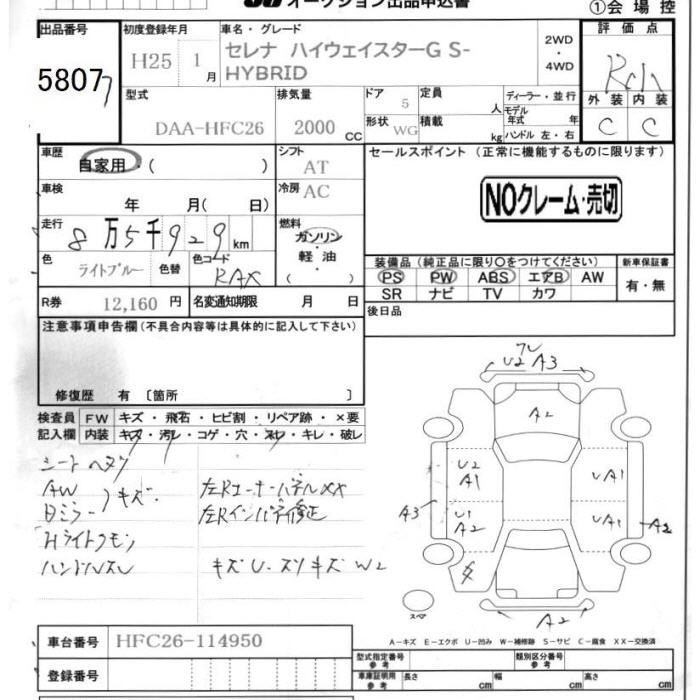 オークション出品申込書
①会場控
出品番号
58077
初度登録年月
H25 1月
車名・グレード
セレナ ハイウェイスターG S-
HYBRID
2WD
・
4WD
評価点
外装 内装
C C
型式
DAA-HFC26
排気量
2000 CC
ドア 5
定員 人
形状 WG
積載 kg
ディーラー・並行
モデル年式 年
ハンドル 左・右
車歴
自家用・( )
シフト
AT
車検
年 月( 日)
冷房 AC
走行
8万5千929km
燃料
ガソリン
・
軽油
( )
色
ライトブルー
色替
色コード
RAX
R券 12,160 円
名変通知期限 月 日
セールスポイント (正常に機能するものに限ります)
NOクレーム・売切
装備品(純正品に限り○をつけてください)
PS PW ABS エアB AW
SR ナビ TV カワ
新車保証書
有・無
後日品
注意事項申告欄(不具合内容等は具体的に記入して下さい)
修復歴 有〔箇所 〕
検査員
記入欄
FW キズ・飛石・ヒビ割・リペア跡・×要
内装 キズ・汚レ・コゲ・穴・スレ・キレ・破レ
AW
Dミラー
キズ
Hライトクモリ
ハンドルスレ
左Rコーナーパネル××
左Rインパネ修正
キズU・スリキズ W2
U2 A3
A2
U2
A1
U1
A2
UA1
UA1
A3
A2
A2
スペア
A-キズ E-エクボ U-凹み W-補修跡 S-サビ C-腐食 XX-交換済
車台番号 HFC26-114950
登録番号
型式指定番号
参考
類別区分番号
参考
車庫証明用
参考
長さ cm
幅 cm
高さ cm